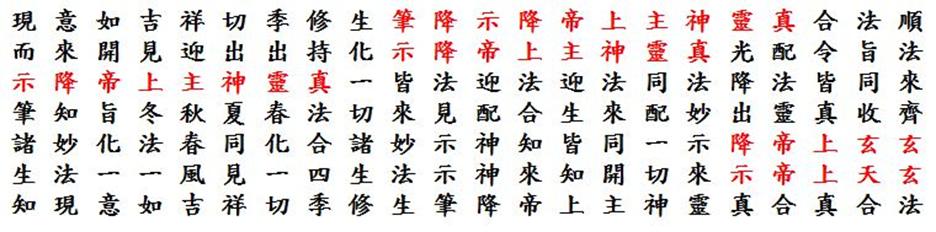 順法合真靈神主上帝降示降筆生修季切祥吉如意現
法旨令配光真靈神主上帝降示化持出出迎見開來而
來同皆法降法同法迎法迎法皆一真靈神主上帝降示
齊收真靈出妙配來生合配見來切法春夏秋冬旨知筆
玄玄上帝降示一同皆知神示妙諸合化同春法化妙諸
玄天上帝示來切開知來神示法生四一見風一一法生
法合真合真靈神主上帝降筆生修季切祥吉如意現知